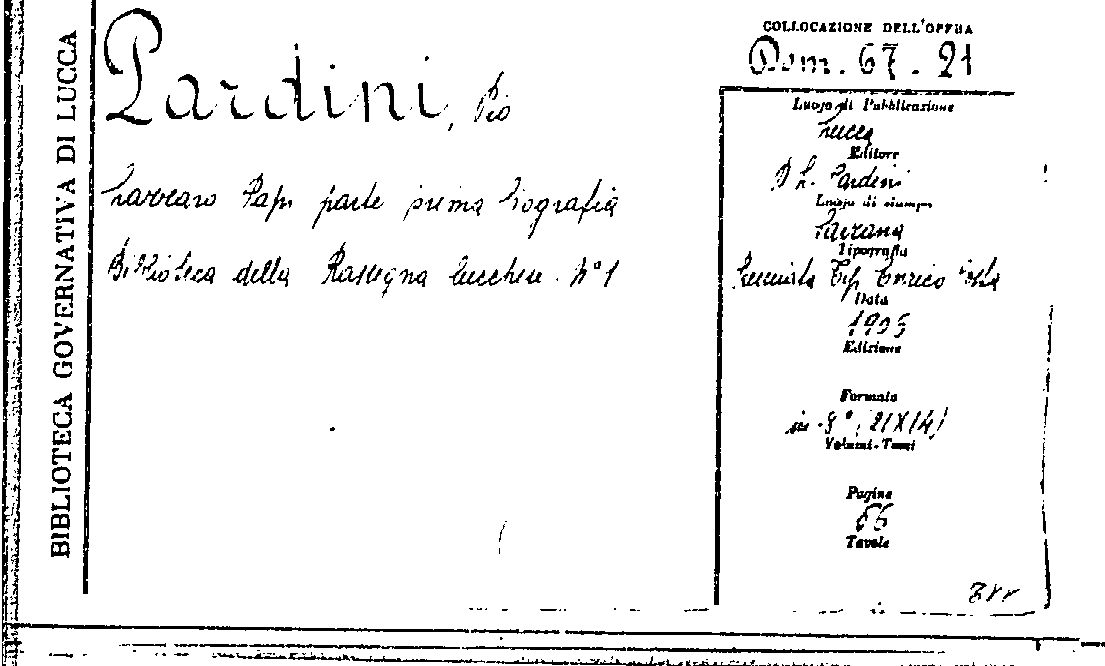 BIBLIOTECA GOVERNATIVA DI LUCCA
Pardini, Pio
Lazzaro Papi parte prima biografia
Biblioteca della Rassegna lucchese. N° 1
COLLOCAZIONE DELL'OPERA
Dom. 67. 21
Luogo di Pubblicazione
Lucca
Editore
Pardini
Luogo di stampa
Sarzana
Tipografia
Tip Enrico Costa
Data
1905
Edizione
Formato
in-8°, (21X14)
Volumi-Tomi
Pagine
56
Tavole